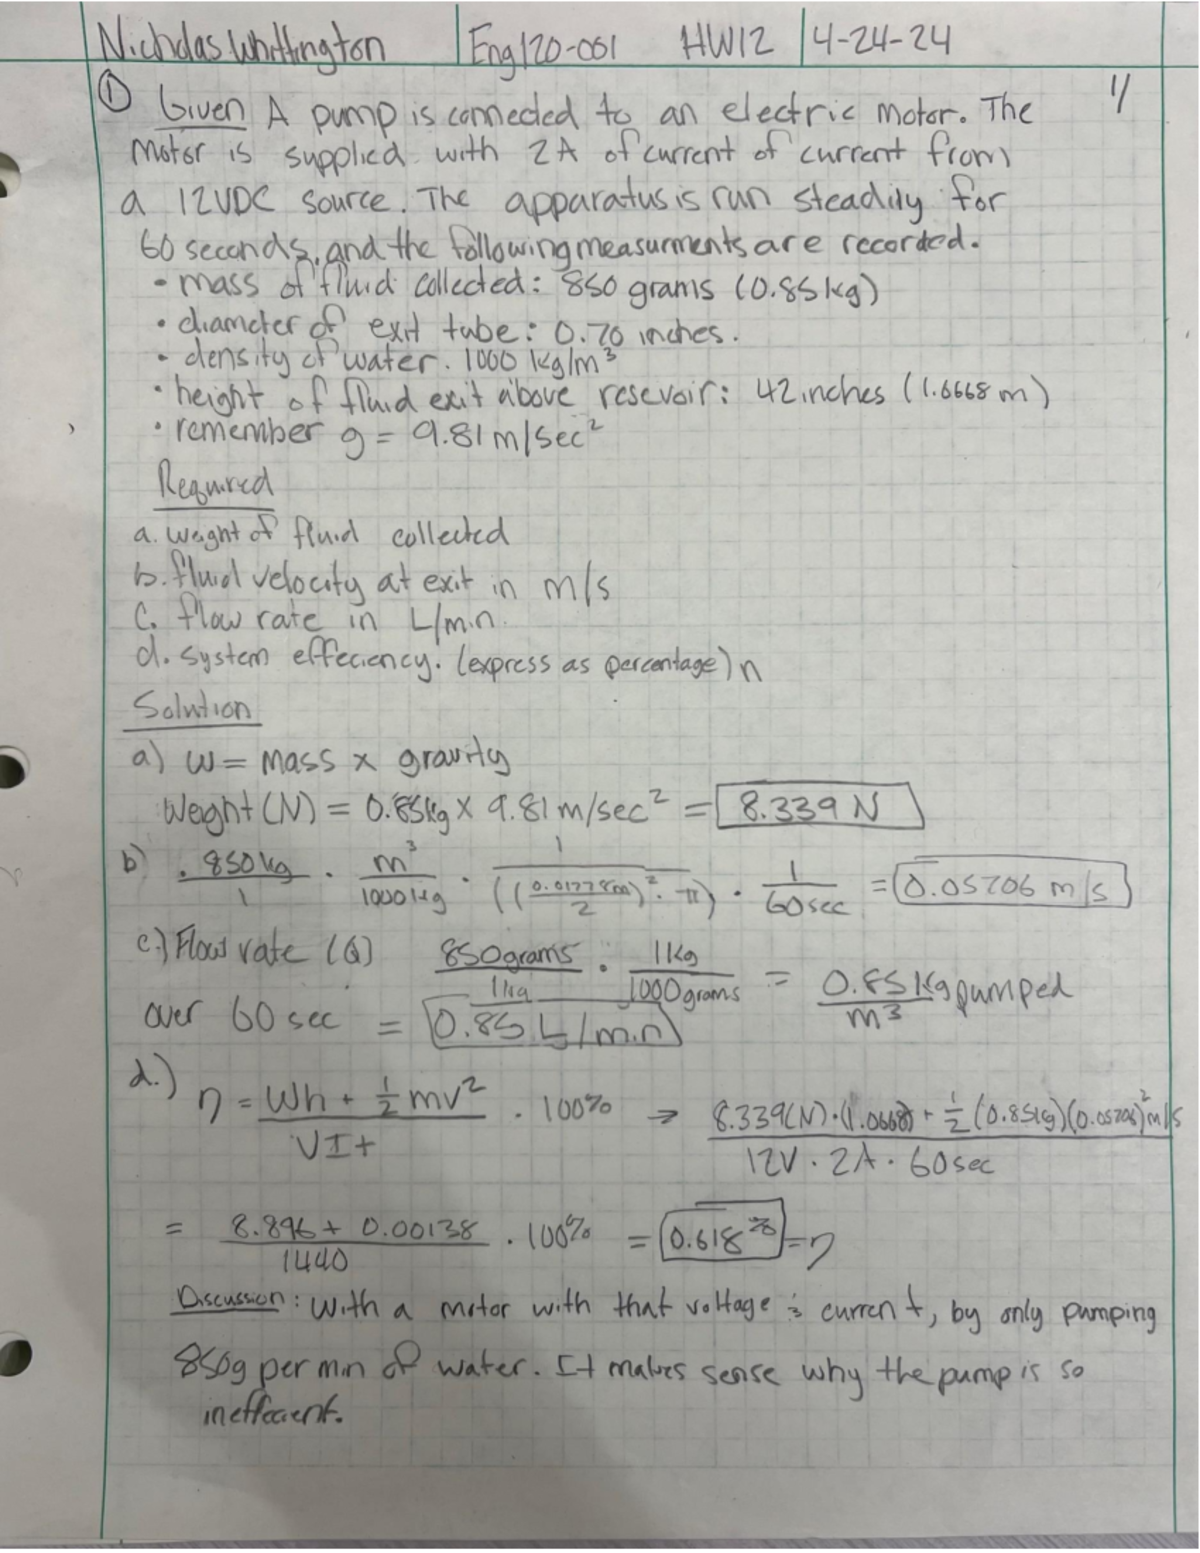 Nicholas Whittington | Eng120-001 HW12 | 4-24-24
1/
① Given A pump is connected to an electric motor. The
motor is supplied with 2A of current of current from
a 12VDC source. The apparatus is run steadily for
60 seconds, and the following measurments are recorded.
• mass of fluid collected: 850 grams (0.85kg)
• diameter of exit tube: 0.70 inches.
• density of water. 1000 kg/m³
• height of fluid exit above resevoir: 42 inches (1.0668 m)
• remember g = 9.81 m/sec²
Required
a. weight of fluid collected
b. fluid velocity at exit in m/s
c. flow rate in L/min.
d. system effeciency. (express as percentage) η
Solution
a) w = mass x gravity
Weight (N) = 0.85kg x 9.81 m/sec² = 8.339 N
b) .850kg/1 · m³/1000kg · 1/((0.01778m/2)² · π) · 1/60sec = 0.05706 m/s
c.) Flow rate (Q) 850grams/1kg · 1kg/1000grams = 0.85 kg/m³ pumped
over 60 sec = 0.85 L/min
d.) η = Wh + ½mv²/VIt · 100% → 8.339(N)·(1.0668) + ½(0.85kg)(0.05706)²m/s/12V · 2A · 60sec
= 8.896 + 0.00138/1440 · 100% = 0.618% = η
Discussion: With a motor with that voltage & current, by only pumping
850g per min of water. It makes sense why the pump is so
ineffecient.